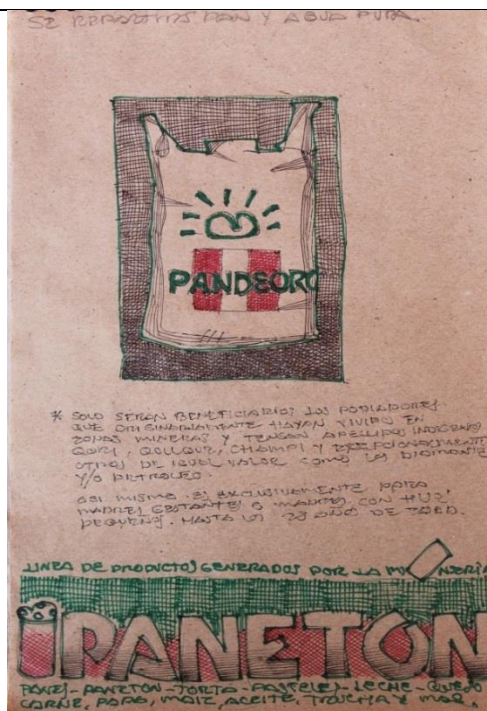 SE REPARTIRÁ PAN Y AGUA PURA.
PANDEORO
* SOLO SERAN BENEFICIARIOS LOS POBLADORES
QUE ORIGINARIAMENTE HAYAN VIVIDO EN
ZONAS MINERAS Y TENGAN APELLIDO INDIGENA
QORI, QOLLQUE, CHAMPI Y EXCEPCIONALMENTE
OTROS DE IGUAL VALOR COMO LOS DIAMANTE
Y/O PETROLEO.
ASI MISMO ES EXCLUSIVAMENTE PARA
MADRES GESTANTES O MADRES CON HIJOS
PEQUEÑOS. HASTA LOS AÑO DE EDAD.
LINEA DE PRODUCTOS GENERADOS POR LA
PANETON
PANES-PANETON-TORTA-PASTELES-LECHE-QUESO
CARNE, PAPA, MAIZ, ACEITE, TRUCHA Y MAS.